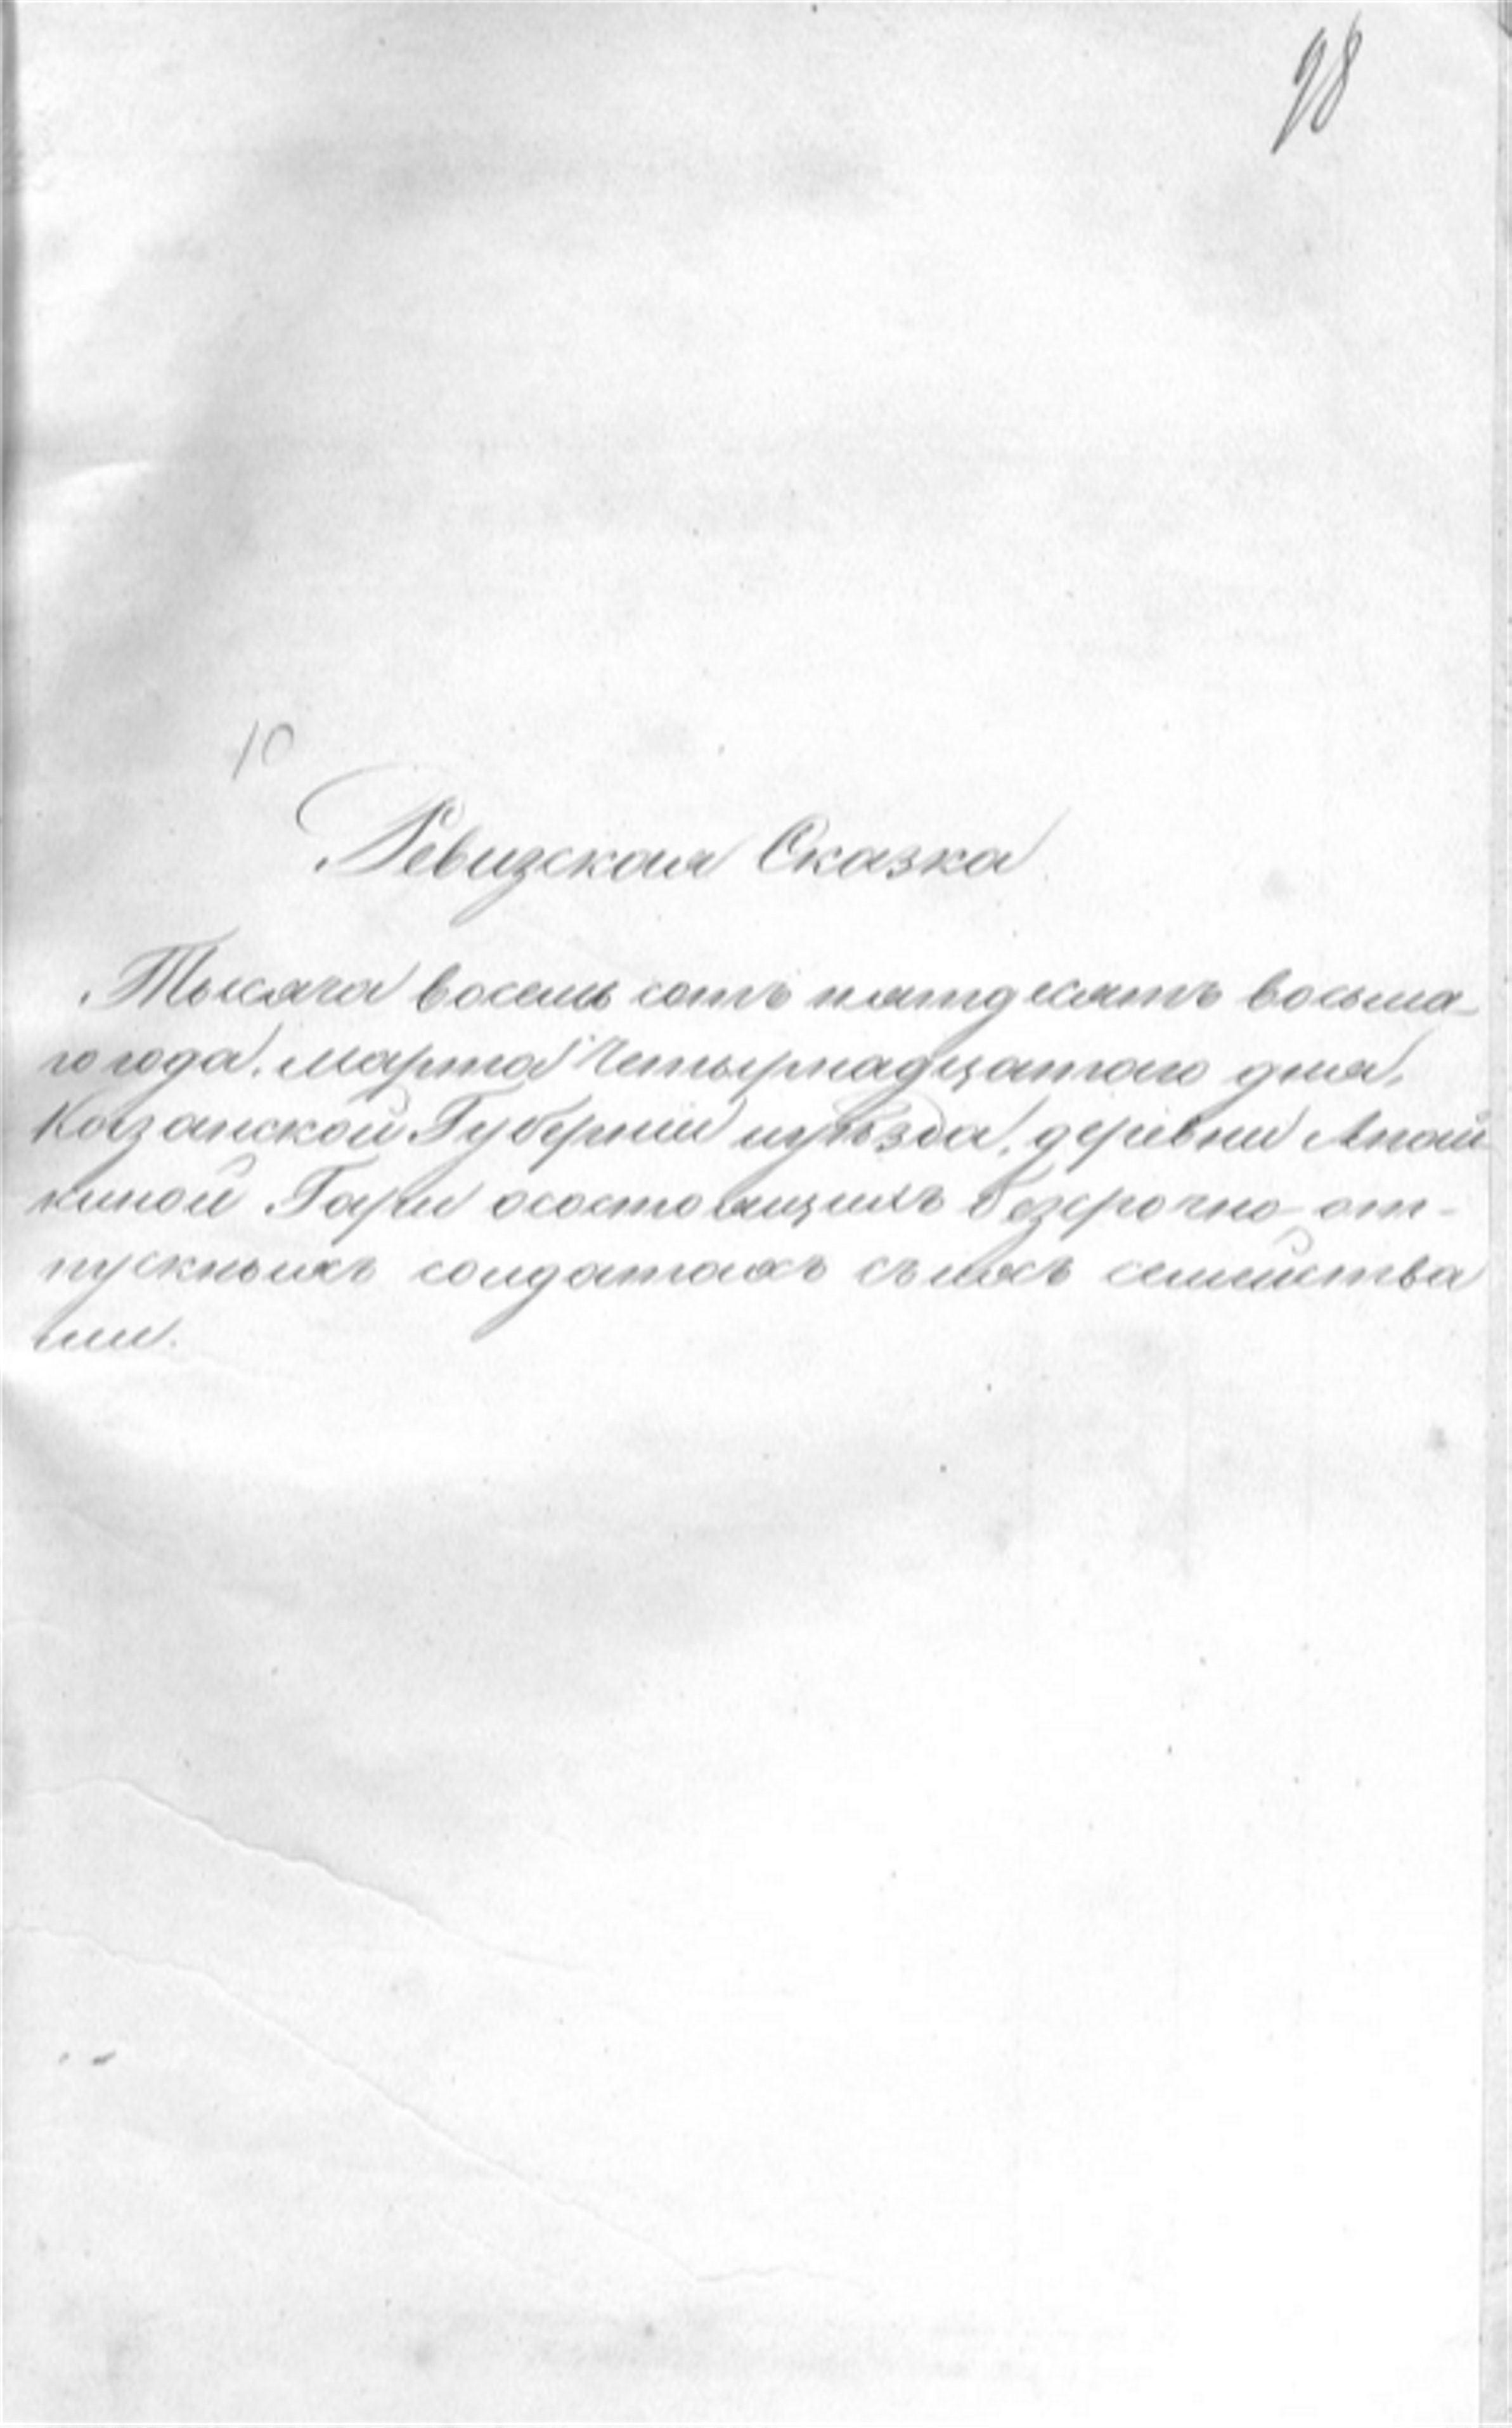 98
10
Ревизская Сказка
Тысяча восемь сотъ пятдесятъ восьма-
го года. Марта Четырнадцатаго дня,
Казанской Губернии иуѣзда, деревни Апай
киной Гари осостоящихъ безсрочно-от-
пускныхъ солдатахъ съ ихъ семейства
ми.